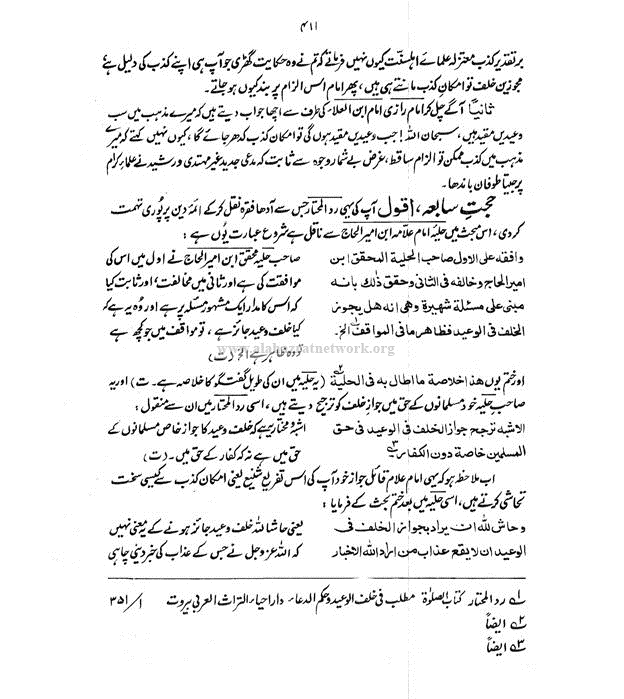 ۴۱۱
بر تقدیر کذب معتزلہ علمائے اہلسنّت کیوں نہیں فرماتے کو تم نے وہ حکایت گھڑی جو آپ ہی اپنے کذب کی دلیل ہے
مجوزین خلف تو امکانِ کذب مانتے ہی ہیں، پھر امام اس الزام پر بند کیوں ہو جاتے۔
ثانیاً آگے چل کر امام رازی امام ابن العلاء کی طرف سے اچھا جواب دیتے ہیں کہ میرے مذہب میں سب
وعیدیں مقید ہیں، سبحان اللہ! جب وعیدیں مقید ہوں گی تو امکان کذب کدھر جائے گا، کیوں نہیں کہتے کہ میرے
مذہب میں کذب ممکن تو الزام ساقط، غرض بے شمار وجوہ سے ثابت کہ مدعی جدید غیر مہتدی و رشید نے علماء کرام
پر جیتا طوفان باندھا۔
حجتِ سابعہ، اقول آپ کی یہی ردالمحتار جس سے آدھا فقرہ نقل کرکے ائمہ دین پر پُوری تہمت
کر دی، اس مبحث میں حلیہ امام علامہ ابن امیر الحاج سے ناقل ہے شروع عبارت یُوں ہے :
وافقہ علی الاول صاحب الحلیۃ المحقق ابن
امیر الحاج وخالفہ فی الثانی وحقق ذٰلک بانہ
مبنی علی مسئلۃ شھیرۃ وھی انہ ھل یجوز
الخلف فی الوعید فظاھر ما فی المواقف الخ۱۔
صاحبِ حلیہ محقق ابن امیر الحاج نے اول میں اس کی
موافقت کی ہے اور ثانی میں مخالفت، اور ثابت کیا
کہ اس کا مدار ایک مشہور مسئلہ پر ہے اور وُہ یہ ہے کہ
کیا خلف وعید جائز ہے، تو مواقف میں جو کچھ ہے
تو وہ ظاہر ہے الخ (ت)
www.alahazratnetwork.org
اور ختم یوں ھذا خلاصۃ ما اطال بہ فی الحلیۃ۲ (یہ حلیہ میں ان کی طویل گفتگو کا خلاصہ ہے۔ ت) اور یہ
صاحبِ حلیہ خود مسلمانوں کے حق میں جوازِ خلف کو ترجیح دیتے ہیں، اسی ردالمحتار میں ان سے منقول :
الاشبہ ترجح جواز الخلف فی الوعید فی حق
المسلمین خاصۃ دون الکفار۳۔
اشبہ و مختار یہ ہے کہ خلف وعید کا جواز خاص مسلمانوں کے
حق میں ہے نہ کہ کفار کے حق میں۔ (ت)
اب ملاحظہ ہو کہ یہی امام علام قائل جواز خود آپ کی اس تفریع شنیع یعنی امکان کذب سے کیسی سخت
تحاشی کرتے ہیں، اسی حلیہ میں بعد ختم بحث کے فرمایا :
وحاش للہ ان یراد بجواز الخلف فی
الوعید ان لا یقع عذاب من اراد اللہ الاخبار
یعنی حاشا للہ خلف وعید جائز ہونے کے یہ معنی نہیں
کہ اللہ عز وجل نے جس کے عذاب کی خبر دینی چاہی
۱؎ ردالمحتار کتاب الصلوٰۃ مطلب فی خلف الوعید وحکم الدعاء دار احیاء التراث العربی بیروت ۱/ ۳۵۱
۲؎ ایضاً
۳؎ ایضاً